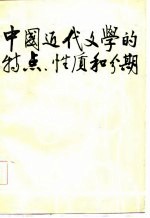 中國近代文學的
特点、性质和分期